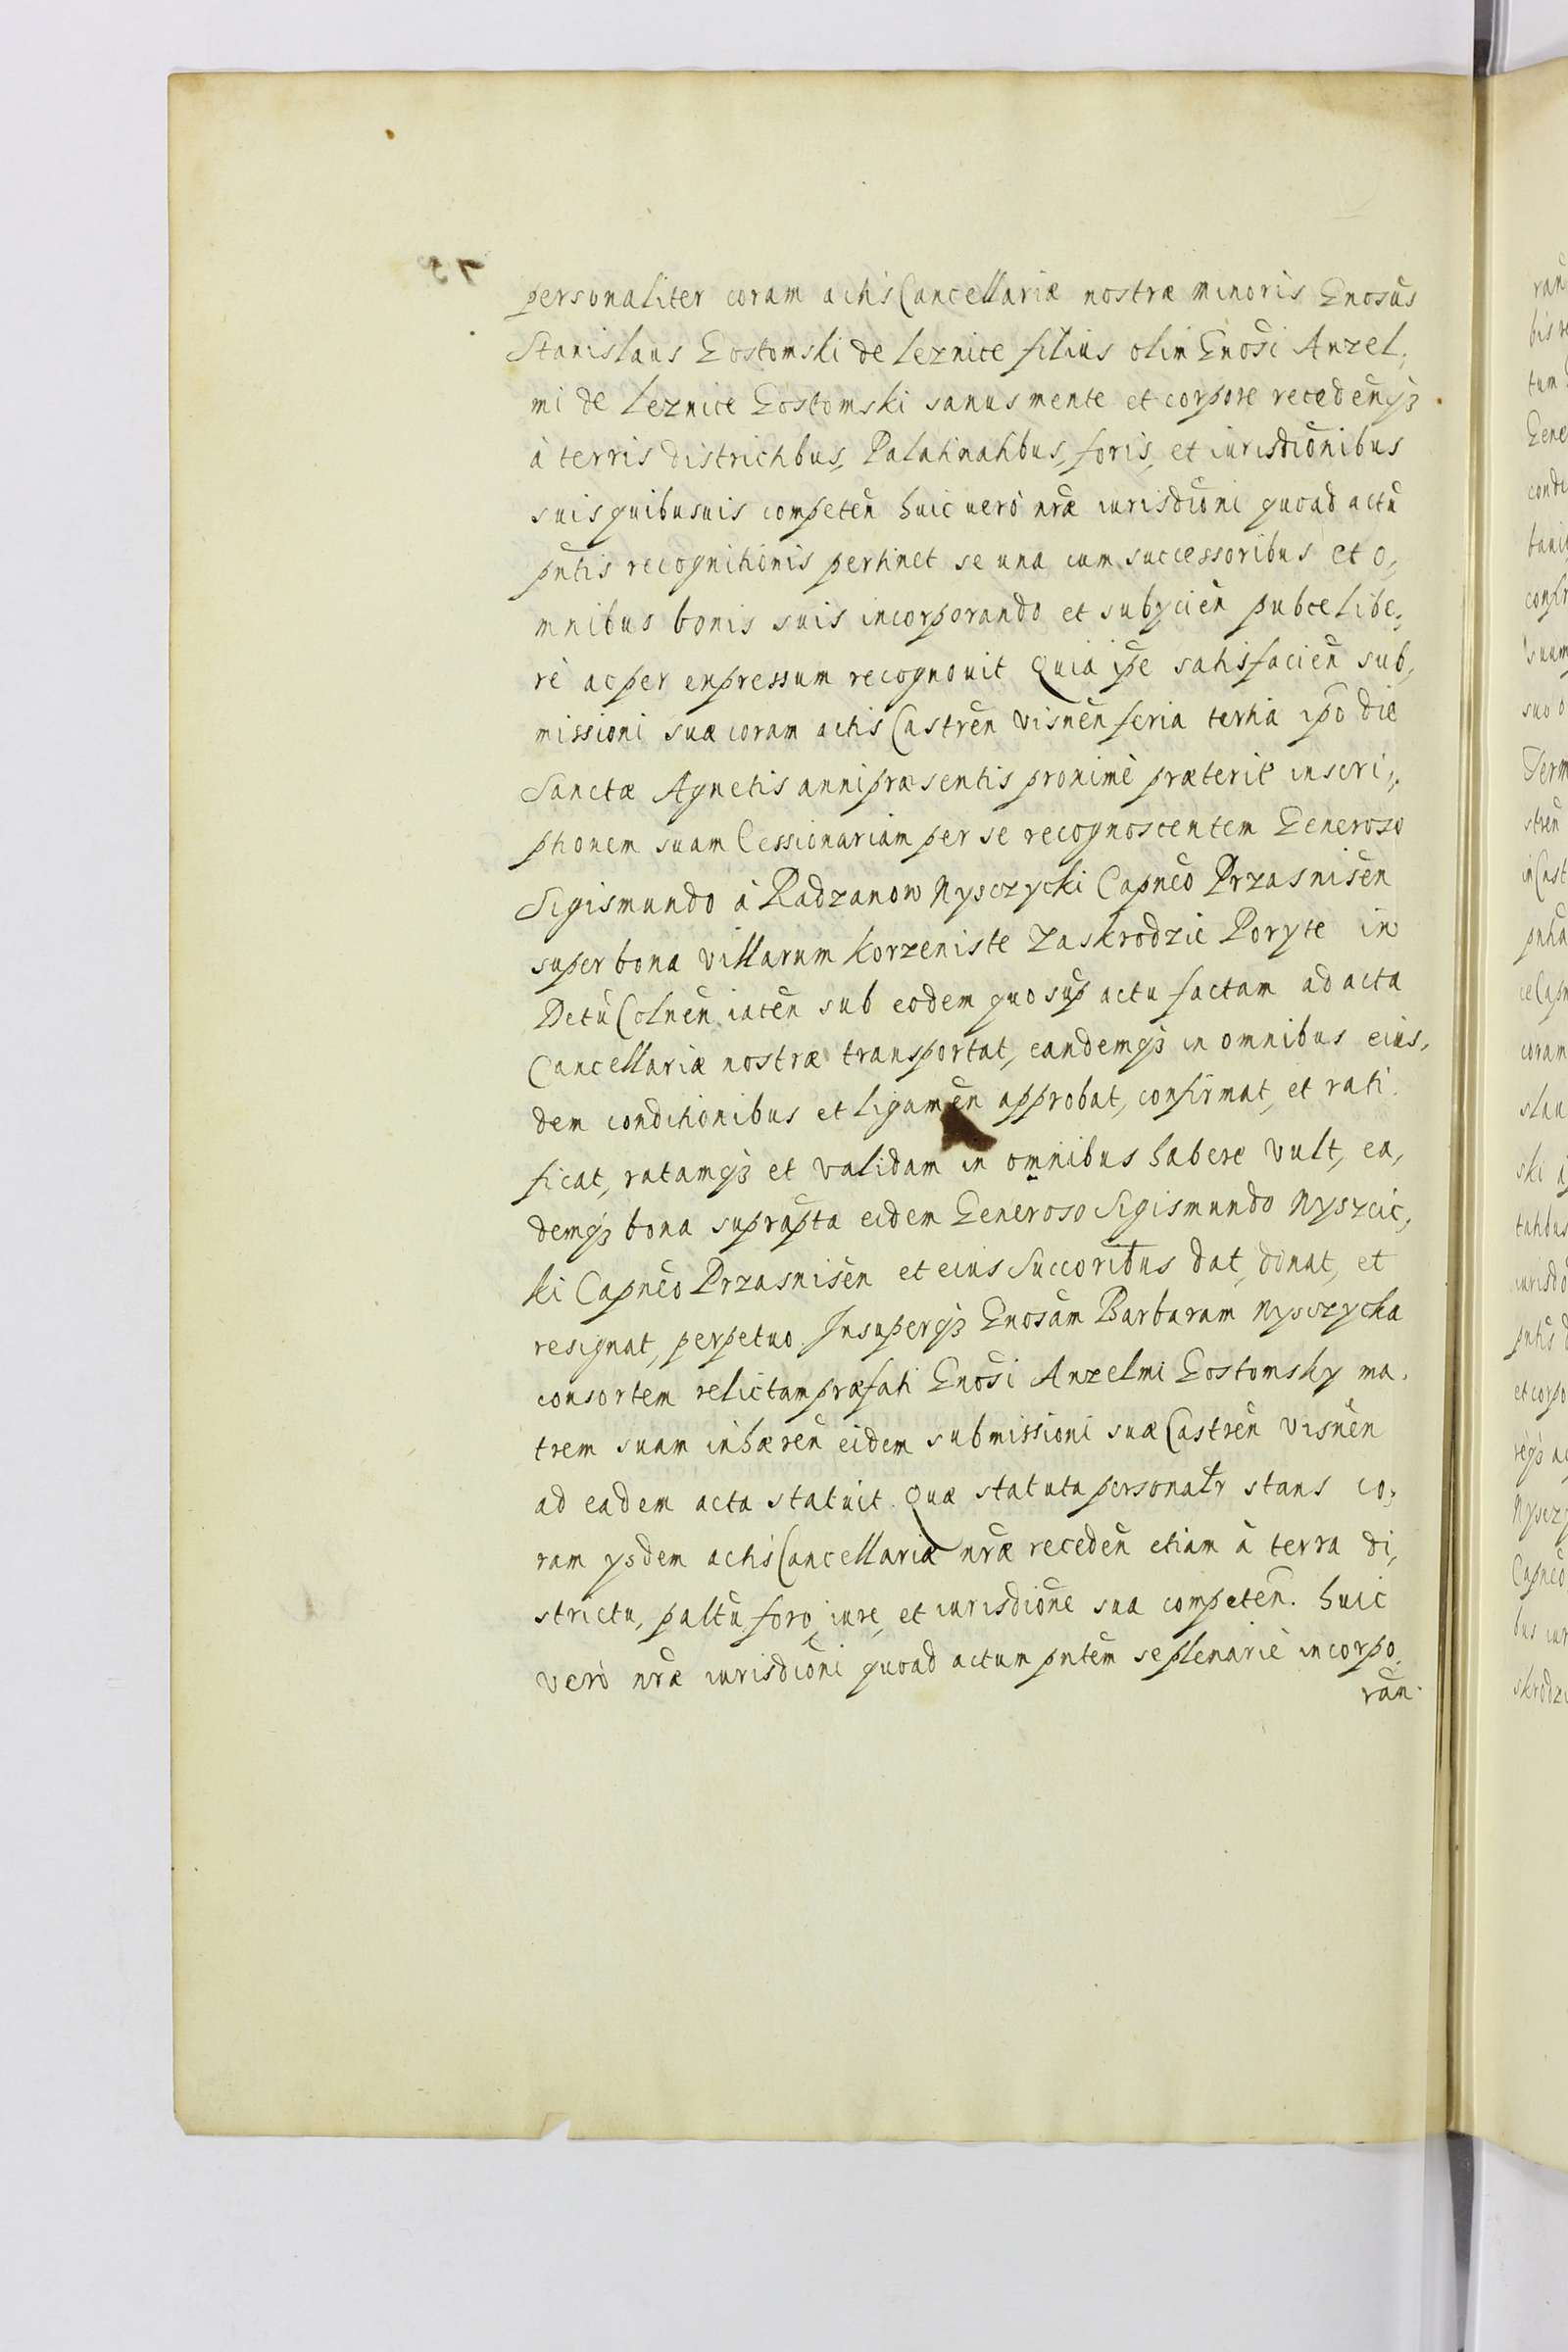 personaliter coram actis Cancellariæ nostræ minoris Gnosus
Stanislaus Gostomski de Leznice filius olim Gnosi Anzel,
mi de Leznice Gostomski sanus mente et corpore recedenqȝ
à terris districtibus, Palatinatibus, foris, et iurisdionibus
suis quibusuis competen huic uerò nræ iurisdioni quoad actu
pntis recognitionis pertinet se una cum successoribus et o,
mnibus bonis suis incorporando et subycien pubce libe,
rè ac per expressum recognouit Quia ipe satisfacien sub,
missioni suæ coram actis Castren Visnen feria tertia ipo die
Sanctæ Agnetis anni præsentis proximè præterit inscri,
ptionem suam Cessionariam per se recognoscentem Generoso
Sigismundo à Radzanow Nysczycki Capneo Przasnisen
super bona villarum Korzeniste Zaskrodzie Poryte in
Dctu Colnen iacen sub eodem quo sup actu factam ad acta
Cancellariæ nostræ transportat, eandemqȝ in omnibus eius,
dem conditionibus et ligamen approbat, confirmat, et rati
ficat, ratamqȝ et validam in omnibus habere vult, ea,
demqȝ bona suprapta eidem Generoso Sigismundo Nyszcic,
ki Capneo Przasnisen et eius Succoribus dat, donat, et
resignat, perpetuo. Insuperqȝ Gnosam Barbaram Nysczycka
consortem relictam præfati Gnosi Anzelmi Gostomsky ma,
trem suam inhæren eidem submissioni suæ Castren Visnen
ad eadem acta statuit. Quæ statuta personalr stans co,
ram ysdem actis Cancellariæ nræ receden etiam à terra di,
strictu, paltu foro, iure, et iurisdione sua competen. huic
verò nræ iurisdioni quoad actum pntem se plenariè incorpo,
ran